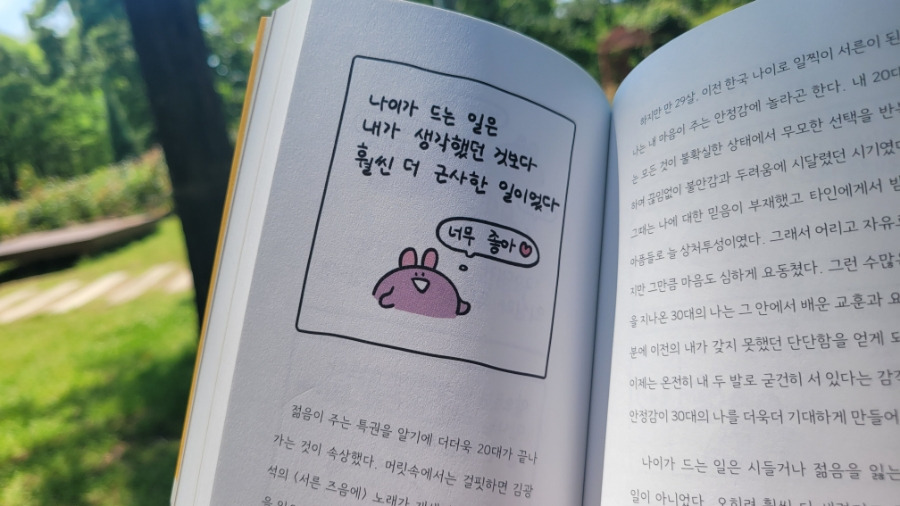 나이가 드는 일은
내가 생각했던 것보다
훨씬 더 근사한 일이었다
너무 좋아
젊음이 주는 특권을 알기에 더더욱 20대가 끝나
가는 것이 속상했다. 머릿속에서는 걸핏하면 김광
석의 〈서른 즈음에〉 노래가
하지만 만 29살. 이전 한국 나이로 일찍이 서른이 된
나는 내 마음이 주는 안정감에 놀라곤 한다. 내 20대
는 모든 것이 불확실한 상태에서 무모한 선택을
하며 끊임없이 불안감과 두려움에 시달렸던 시기였
그때는 나에 대한 믿음이 부재했고 타인에게서
아픔들로 늘 상처투성이였다. 그래서 어리고 자유
지만 그만큼 마음도 심하게 요동쳤다. 그런 수많은
을 지나온 30대의 나는 그 안에서 배운 교훈과
분에 이전의 내가 갖지 못했던 단단함을 얻게
이제는 온전히 내 두 발로 굳건히 서 있다는 감각
안정감이 30대의 나를 더욱더 기대하게 만들어
나이가 드는 일은 시들거나 젊음을 잃는
일이 아니었다. 오히려 훨씬 더